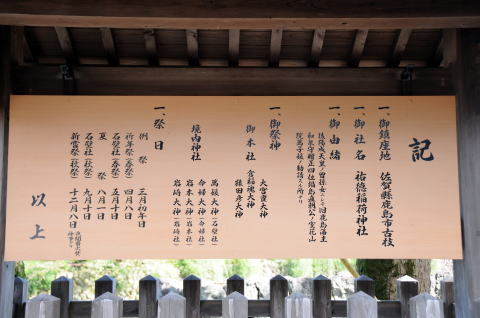 記
一、御鎮座地 佐賀縣鹿島市古枝
一、御社名 祐徳稲荷神社
一、御由緒
後陽成天皇の曽孫女にして旧鹿島藩主
和泉守贈正四位鍋島直朝公の室花山
院萬子媛の勧請する所なり
一、御祭神
大宮賣大神
御本社 倉稲魂大神
猿田彦大神
境内神社
萬媛大神（石壁社）
命婦大神（命婦社）
岩本大神（岩本社）
岩崎大神（岩崎社）
一、祭日
例祭 三月初午日
祈年祭（春祭） 四月八日
石壁社（春祭） 五月十日
夏祭 八月一日
石壁社（秋祭） 九月十日
新嘗祭（秋祭） 十二月八日
以上